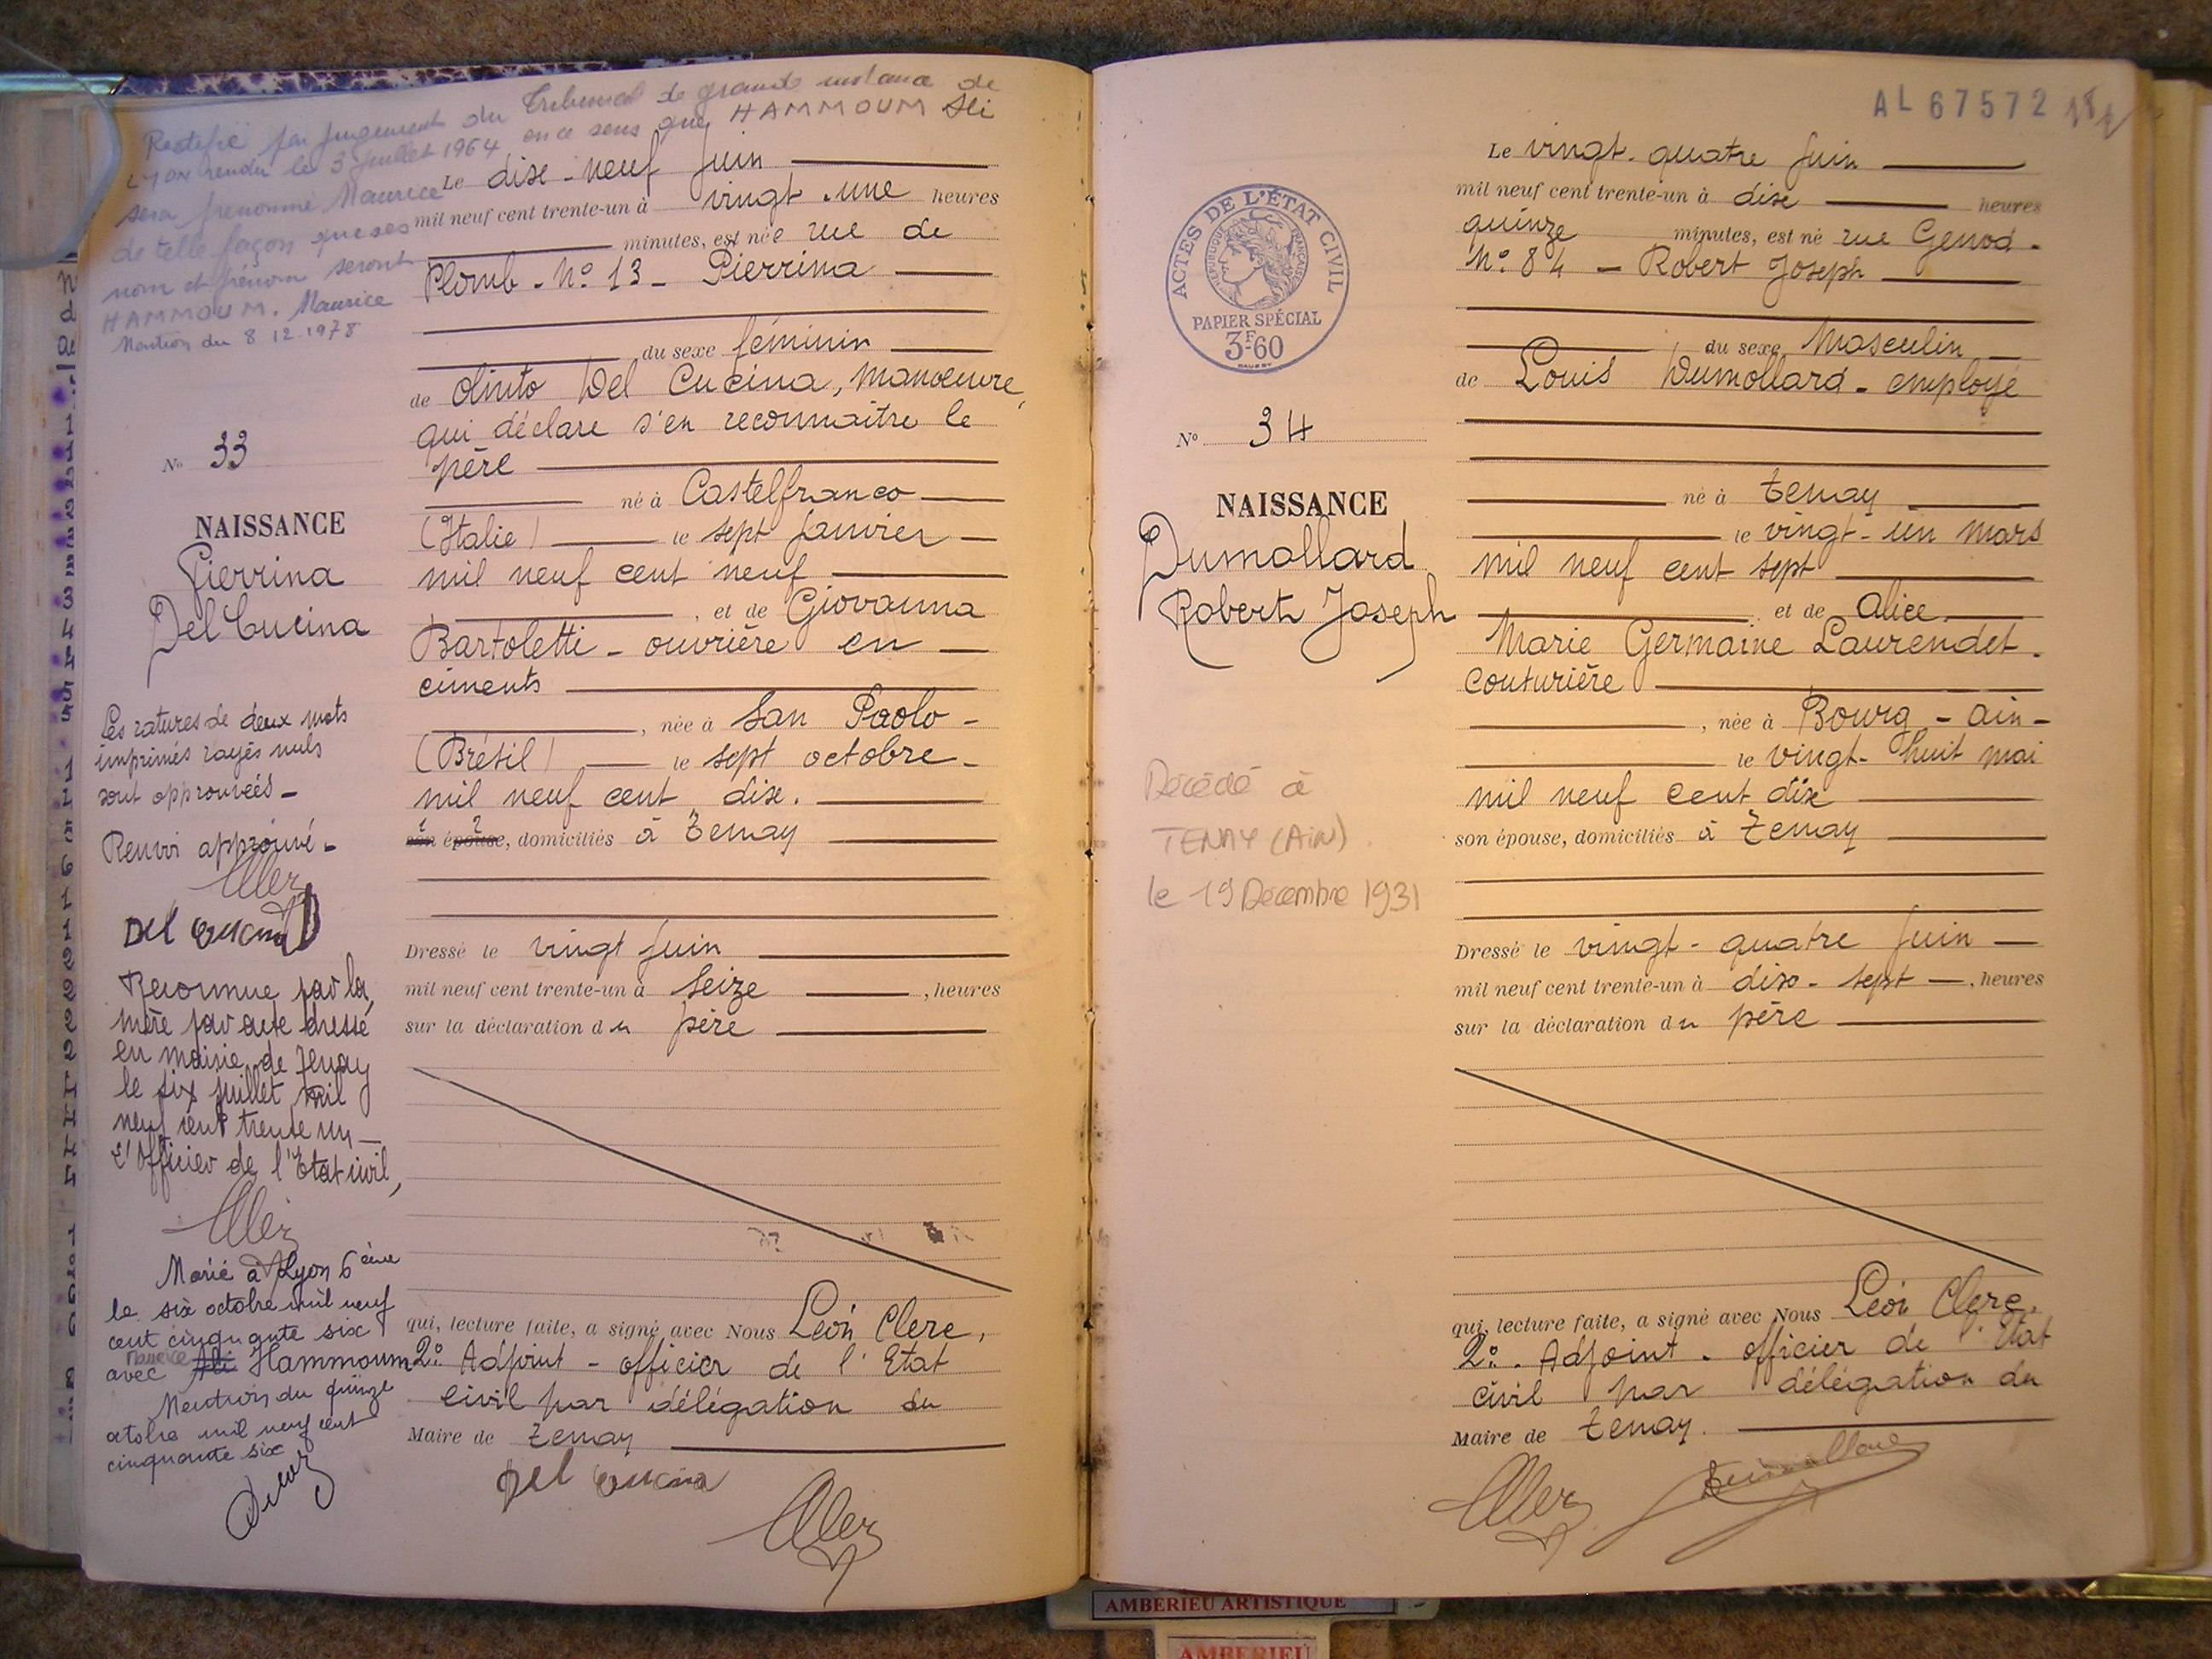 Rectifié par jugement du Tribunal de grande instance de
LYON rendu le 3 juillet 1964 en ce sens que HAMMOUM Ali
sera prénommé Maurice
de telle façon que ses
nom et prénom seront
HAMMOUM. Maurice
Mention du 8 12 1978
Nº 33
NAISSANCE
Pierrina
Del Cucina
Les ratures de deux mots
imprimés rayés nuls
sont approuvées -
Renvoi approuvé -
Del Cucina
Reconnue par la
mère par acte dressé
en mairie de Tenay
le six juillet mil
neuf cent trente un
L'Officier de l'Etat civil,
Marié à Lyon 6ème
le six octobre mil neuf
cent cinquante six
avec Maurice Ali Hammoum
Mention du quinze
octobre mil neuf cent
cinquante six
Le dix-neuf Juin
mil neuf cent trente-un à vingt-une heures
minutes, est née rue de
Plomb - Nº 13 - Pierrina
du sexe féminin
de Olinto Del Cucina, manoeuvre,
qui déclare s'en reconnaître le
père
né à Castelfranco
(Italie) le sept Janvier
mil neuf cent neuf
, et de Giovanna
Bartoletti - ouvrière en
ciments
, née à San Paolo -
(Brésil) le sept octobre -
mil neuf cent dix.
1 2
son épouse, domiciliés à Tenay
Dressé le vingt Juin
mil neuf cent trente-un à Seize , heures
sur la déclaration du père
qui, lecture faite, a signé avec Nous Léon Clerc,
2º Adjoint - officier de l'Etat
Civil par délégation du
Maire de Tenay
Del Cucina
AL 67572
ACTES DE L'ÉTAT CIVIL
RÉPUBLIQUE FRANÇAISE
PAPIER SPÉCIAL
3F60
Nº 34
NAISSANCE
Dumollard
Robert Joseph
Décédé à
TENAY (AIN)
le 19 Décembre 1931
Le vingt-quatre Juin
mil neuf cent trente-un à dix heures
quinze minutes, est né rue Genod -
Nº 84 - Robert Joseph
du sexe Masculin
de Louis Dumollard - employé
né à Tenay
le vingt-un mars
mil neuf cent sept
et de Alice
Marie Germaine Laurendet.
couturière
, née à Bourg - Ain -
le vingt-huit mai
mil neuf cent dix
son épouse, domiciliés à Tenay
Dressé le vingt-quatre Juin
mil neuf cent trente-un à dix-sept , heures
sur la déclaration du père
qui, lecture faite, a signé avec Nous Léon Clerc,
2º - Adjoint - officier de l'Etat
civil par délégation du
Maire de Tenay.
Dumollard
AMBERIEU ARTISTIQUE
AMBERIEU